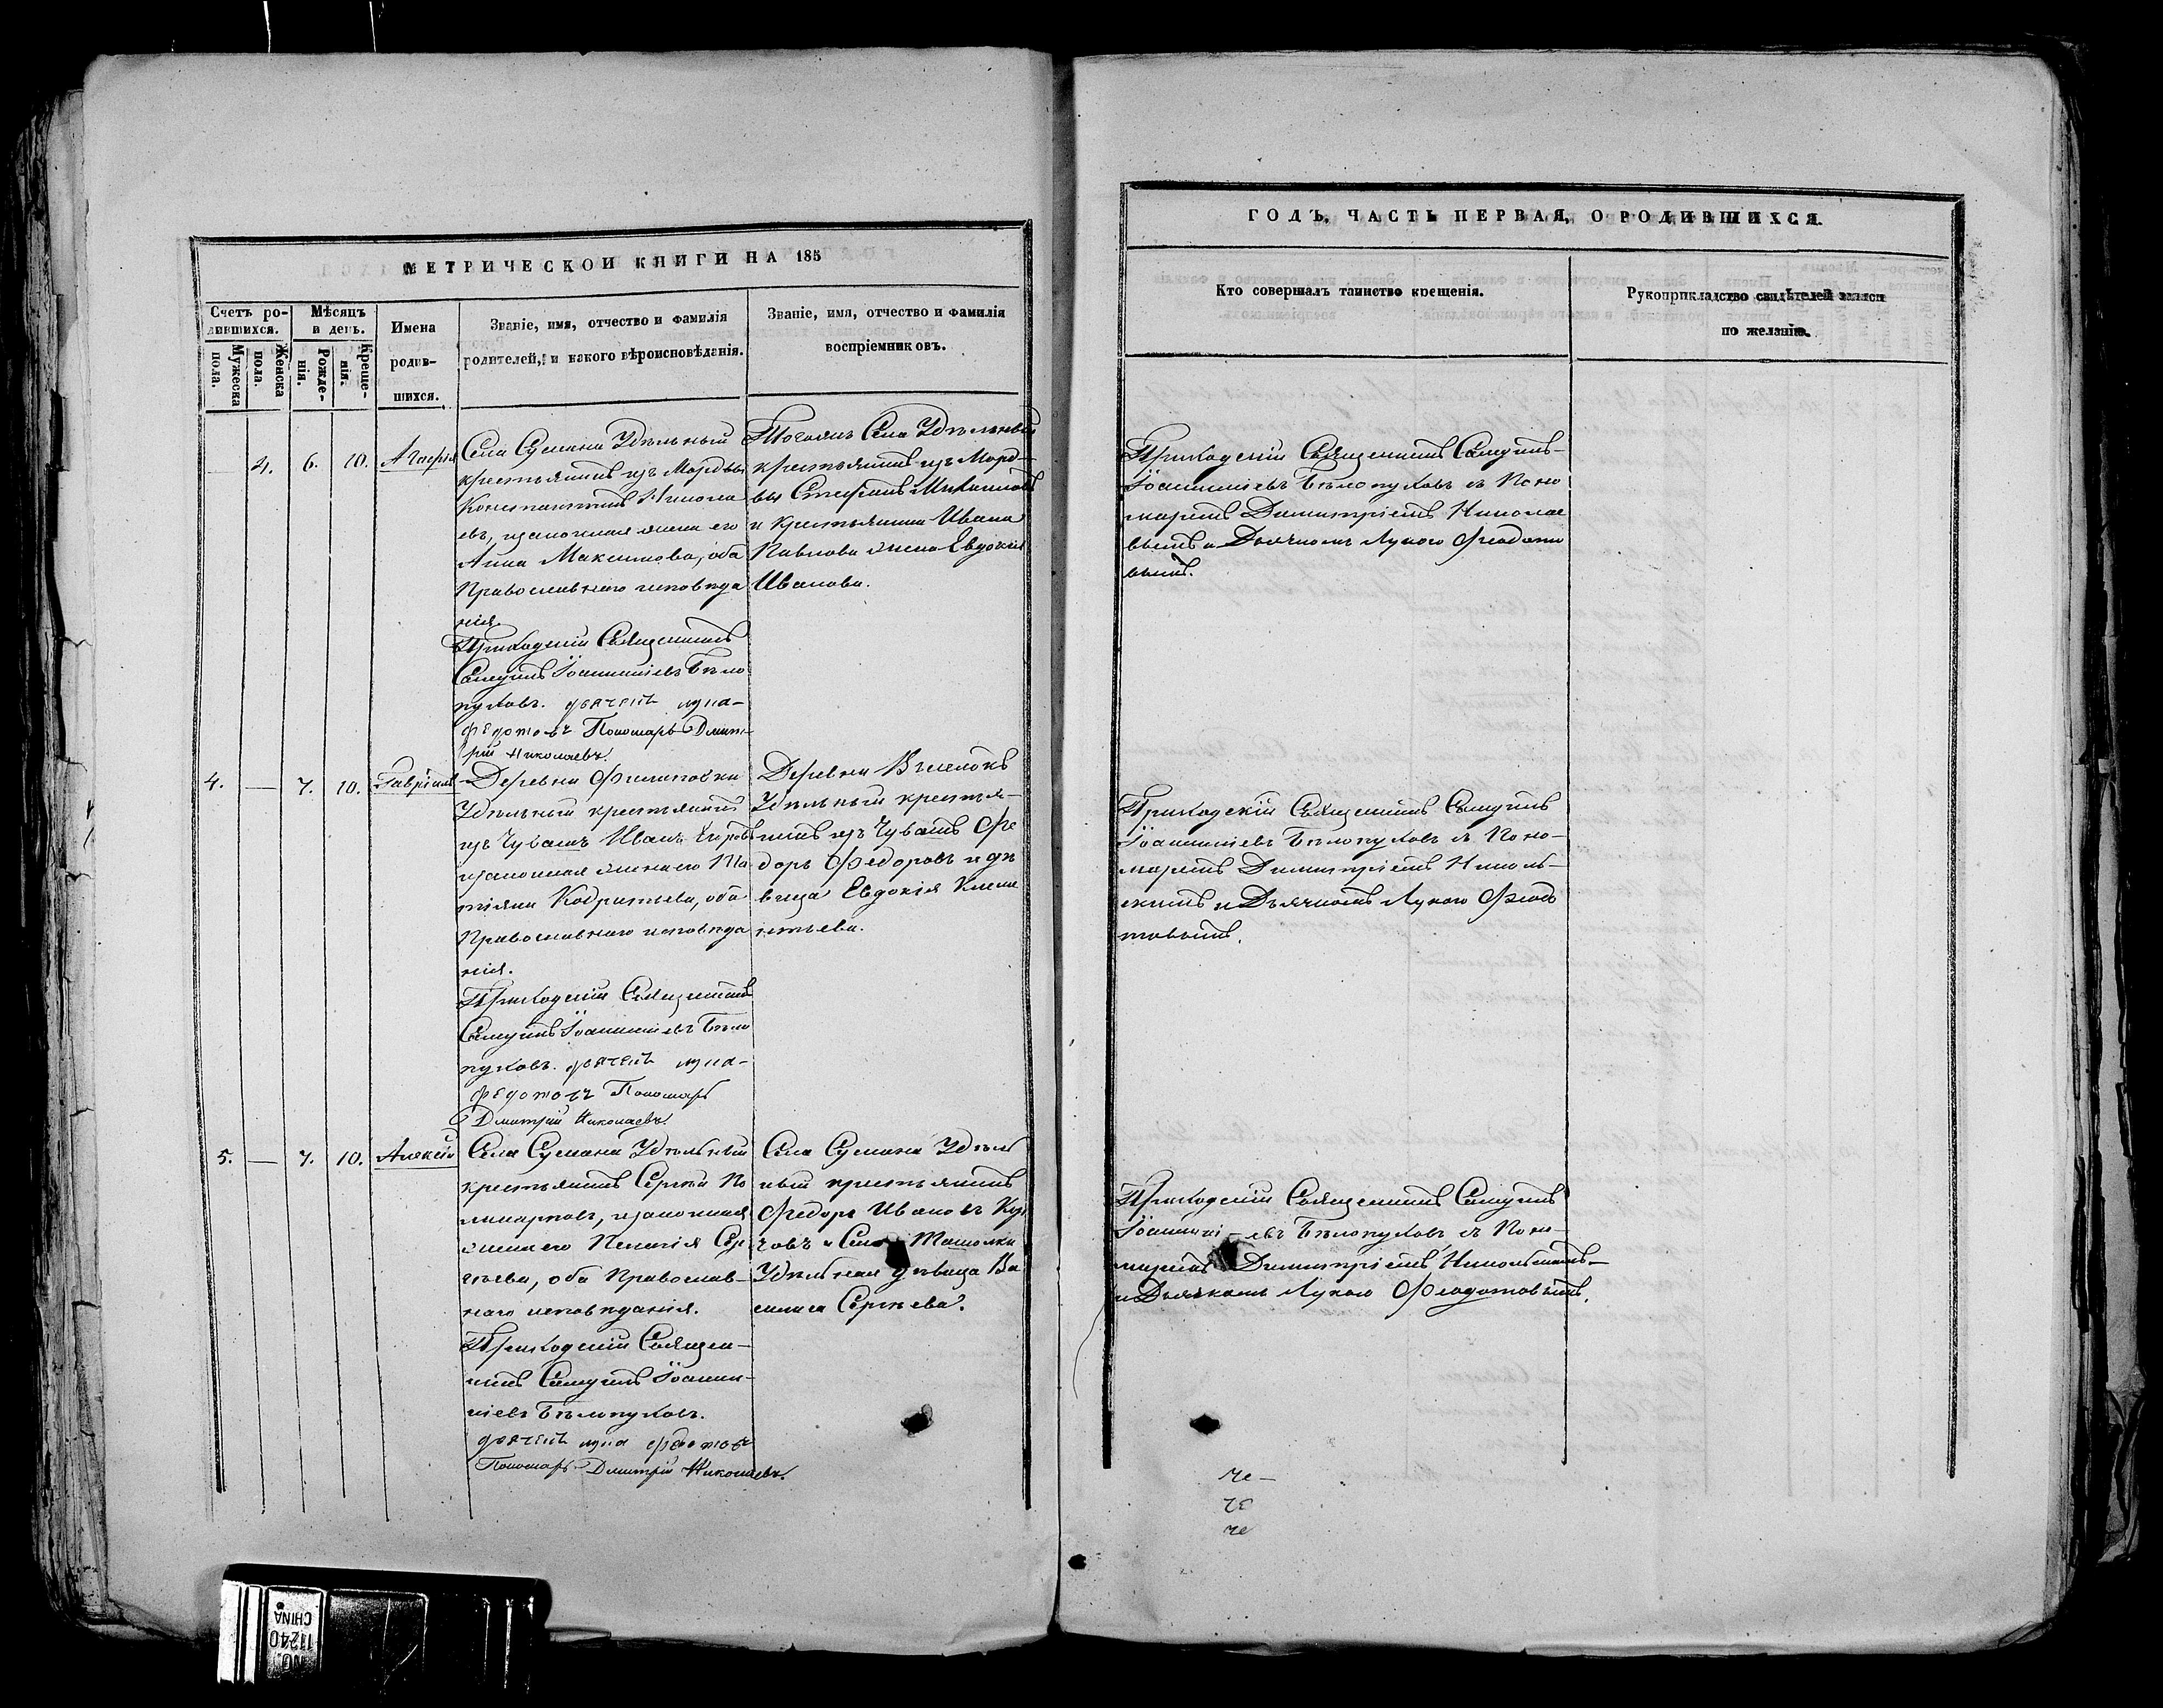 МЕТРИЧЕСКОЙ КНИГИ НА 185
Счетъ ро-
дившихся.
Мужеска
пола.
Женска
пола.
Мѣсяцъ
и день.
Рожде-
нія.
Креще-
нія.
Имена
родив-
шихся.
Званіе, имя, отчество и фамилія
родителей, и какого вѣроисповѣданія.
Званіе, имя, отчество и фамилія
воспріемниковъ.
4. 6. 10. Агафія
Села Сускана Удѣльный
крестьянинъ изъ Мордвы
Константинъ Никола
евъ, и законная жена его
Анна Максимова, оба
Православнаго исповѣда
нія.
Приходскій Священникъ
Самуилъ Іоанниіевъ Бѣло
пуховъ. дьячекъ лука
федотовъ Пономарь Дмит-
рій Николаевъ.
Села Удѣльный
крестьянинъ изъ Морд-
вы Стефанъ Михаиловъ
и крестьянина Ивана
Павлова жена Евдокія
Иванова.
4. — 7. 10. Гавріилъ
Деревни Филиповки
Удѣльный крестьянинъ
изъ Чувашъ Иванъ
законная жена его Та
тіяна Кодратьева, оба
Православнаго исповѣда
нія.
Приходскій Священникъ
Самуилъ Іоанниіевъ Бѣло
пуховъ. дьячекъ лука-
федотовъ Пономарь
Дмитрій Николаевъ.
Деревни Выселокъ
Удѣльный крестья-
нинъ изъ Чувашъ Фе
доръ Федоровъ и дѣ
вица Евдокія Клеме
нтьева.
5. — 7. 10. Алексій
Села Сускана Удѣльный
крестьянинъ Сергѣй По
ликарповъ, и законная
жена его Пелагія Сер
гѣева, оба Православ-
наго исповѣданія.
Приходскій Священ-
никъ Самуилъ Іоанн-
ніевъ Бѣлопуховъ.
дьячекъ лука федотовъ
Пономарь Дмитрій Николаевъ.
Села Сускана Удѣль
ный крестьянинъ
Федоръ Ивановъ
и Села Ташолки
Удѣльная дѣвица Ва
силиса Сергѣева.
ГОДЪ, ЧАСТЬ ПЕРВАЯ, О РОДИВШИХСЯ.
Кто совершалъ таинство крещенія.
Рукоприкладство свидѣтелей записи
по желанію.
Приходскій Священникъ Самуилъ
Іоанниіевъ Бѣлопуховъ съ Поно
маремъ Димитріемъ Николае
вымъ и Дьячкомъ Лукою Феодото
вымъ.
Приходскій Священникъ Самуилъ
Іоанниіевъ Бѣлопуховъ съ Поно-
маремъ Димитріемъ Николь-
скимъ и Дьячкомъ Лукою Феодо
товымъ.
Приходскій Священникъ Самуилъ
Іоанниі-евъ Бѣлопуховъ съ Поно-
маремъ Димитріемъ Никольскимъ-
и Дьячкомъ Лукою Феодотовымъ.
че-
че
че
NO.
11240
CHINA